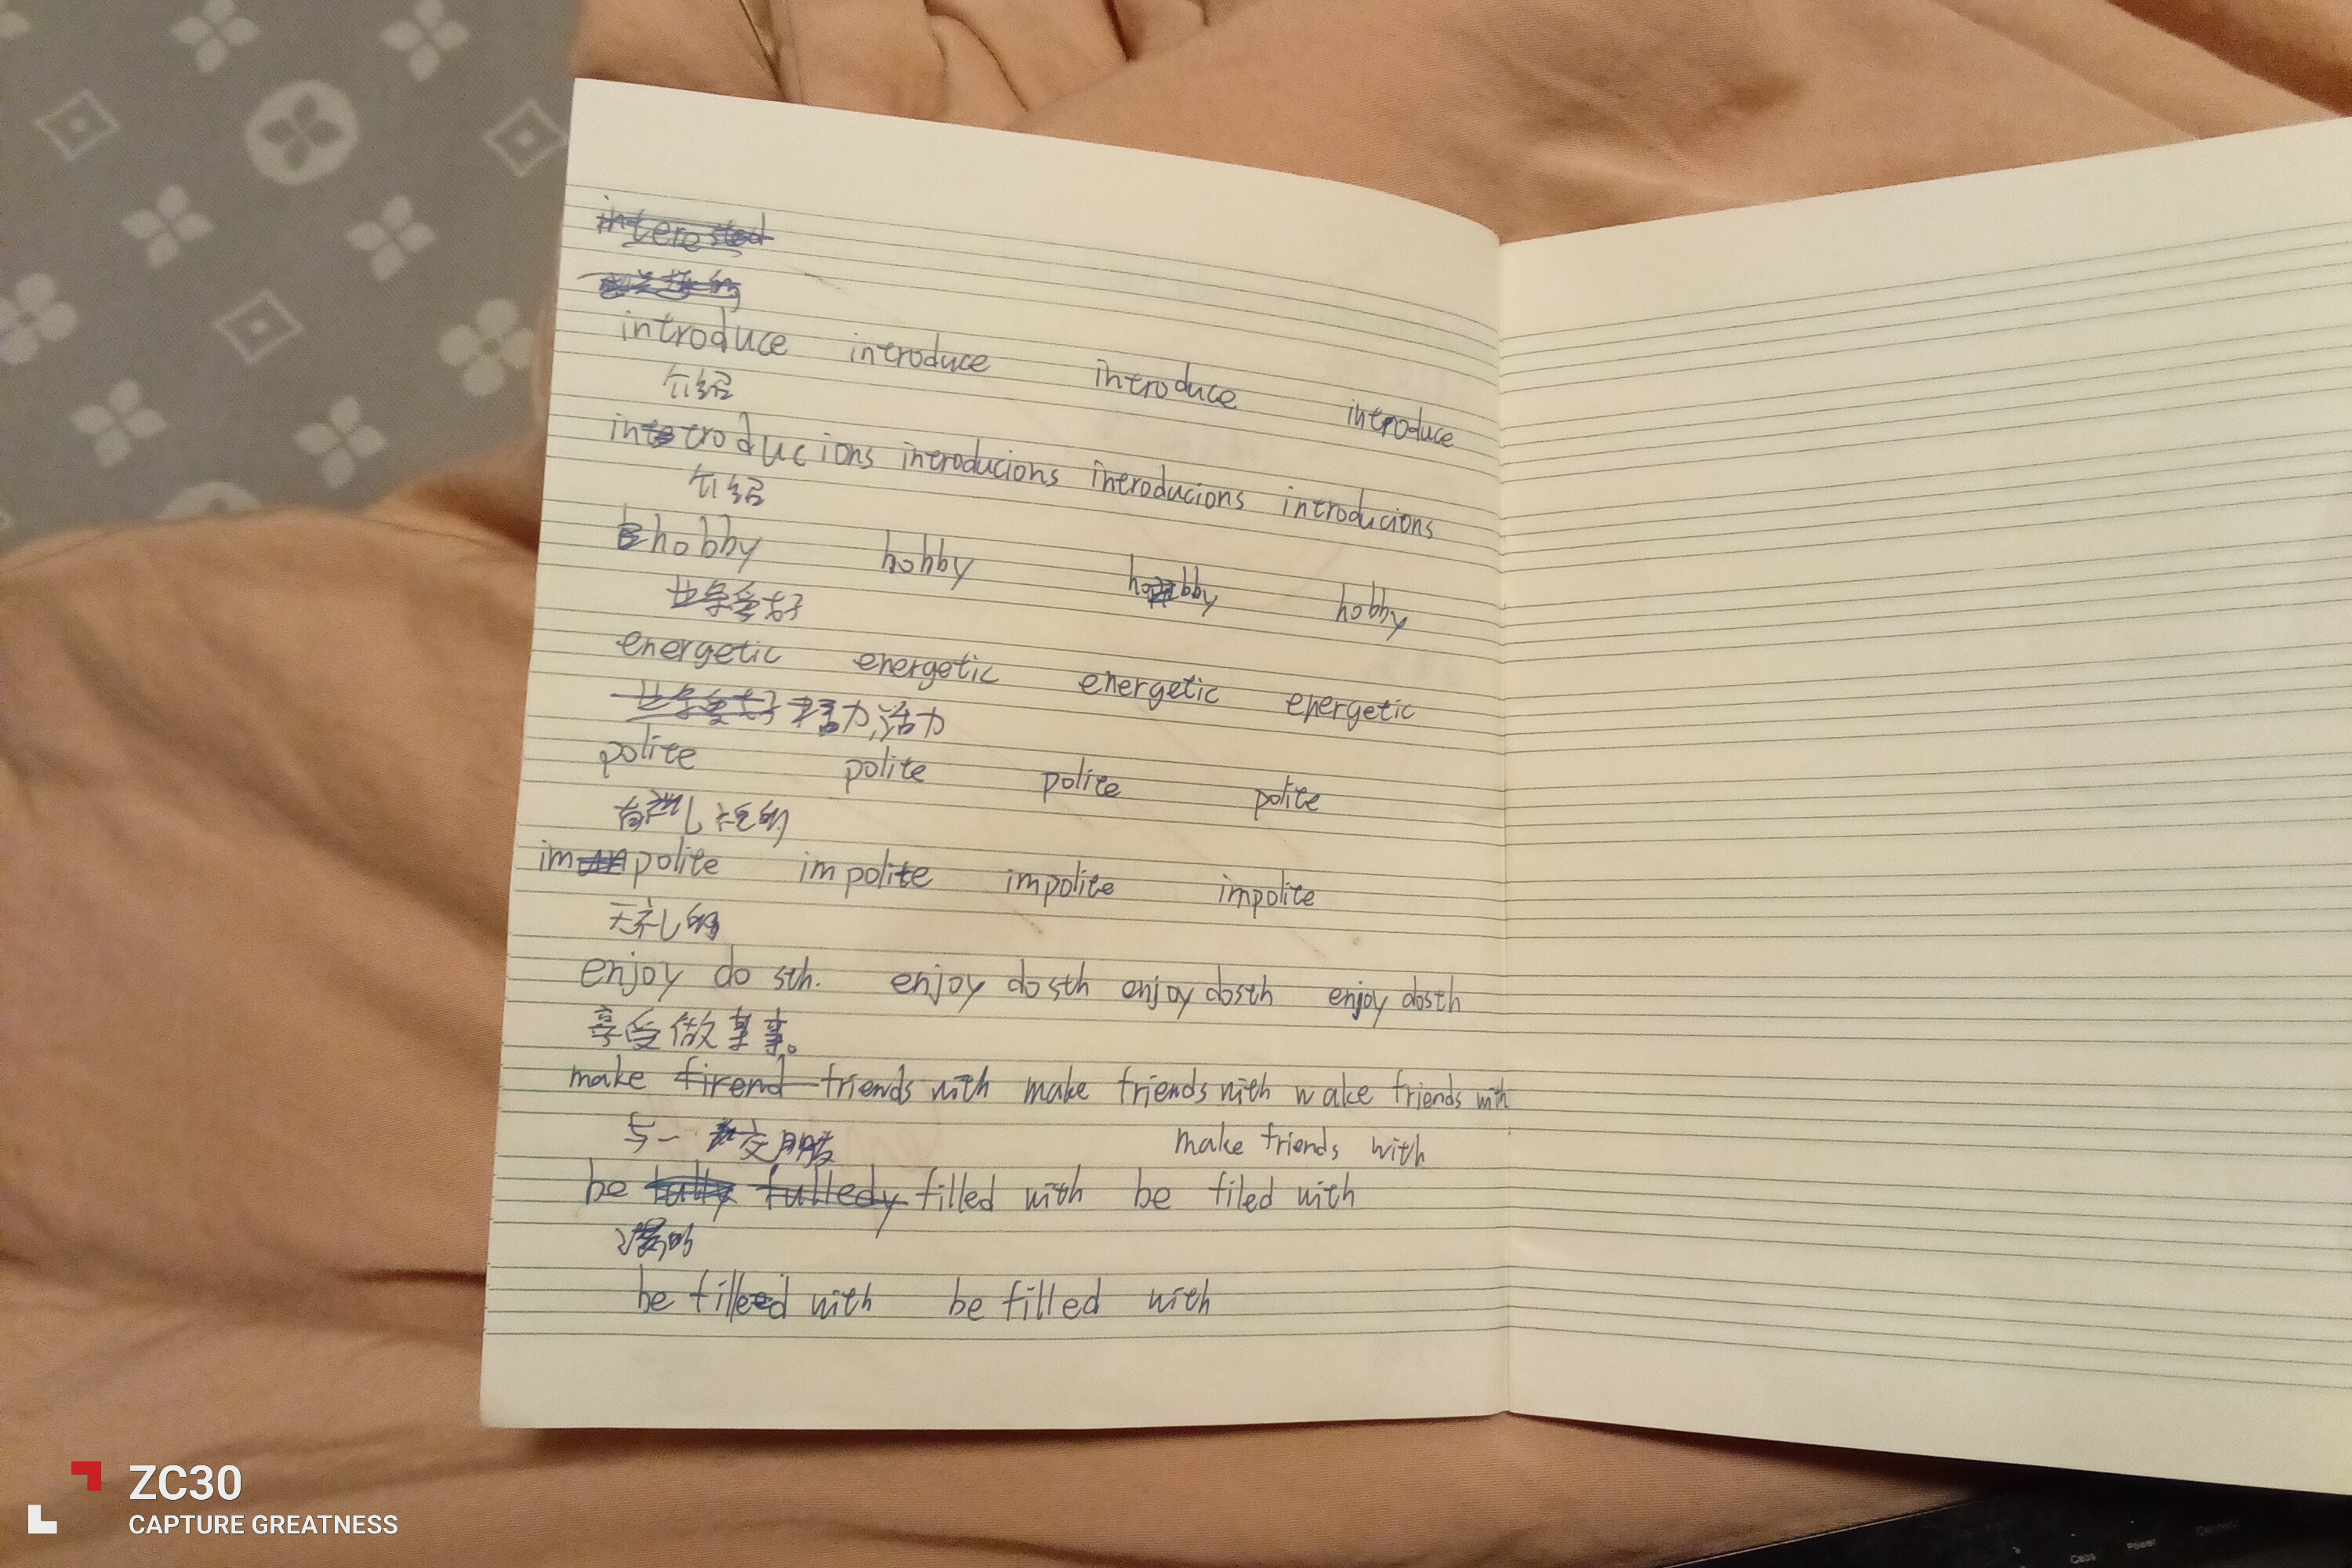 interested
introduce introduce introduce introduce
介绍
introducions introducions introducions introducions
介绍
hobby hobby hobby hobby
业余爱好
energetic energetic energetic energetic
业余爱好 力,活力
polite polite polite polite
有礼的
impolite impolite impolite impolite
无礼的
enjoy do sth. enjoy do sth enjoy do sth enjoy do sth
享受做某事。
make firend friends with make friends with wake friends with
与一 交朋
make friends with
be fully fulledy filled with be filed with
be filled with be filled with
ZC30
CAPTURE GREATNESS